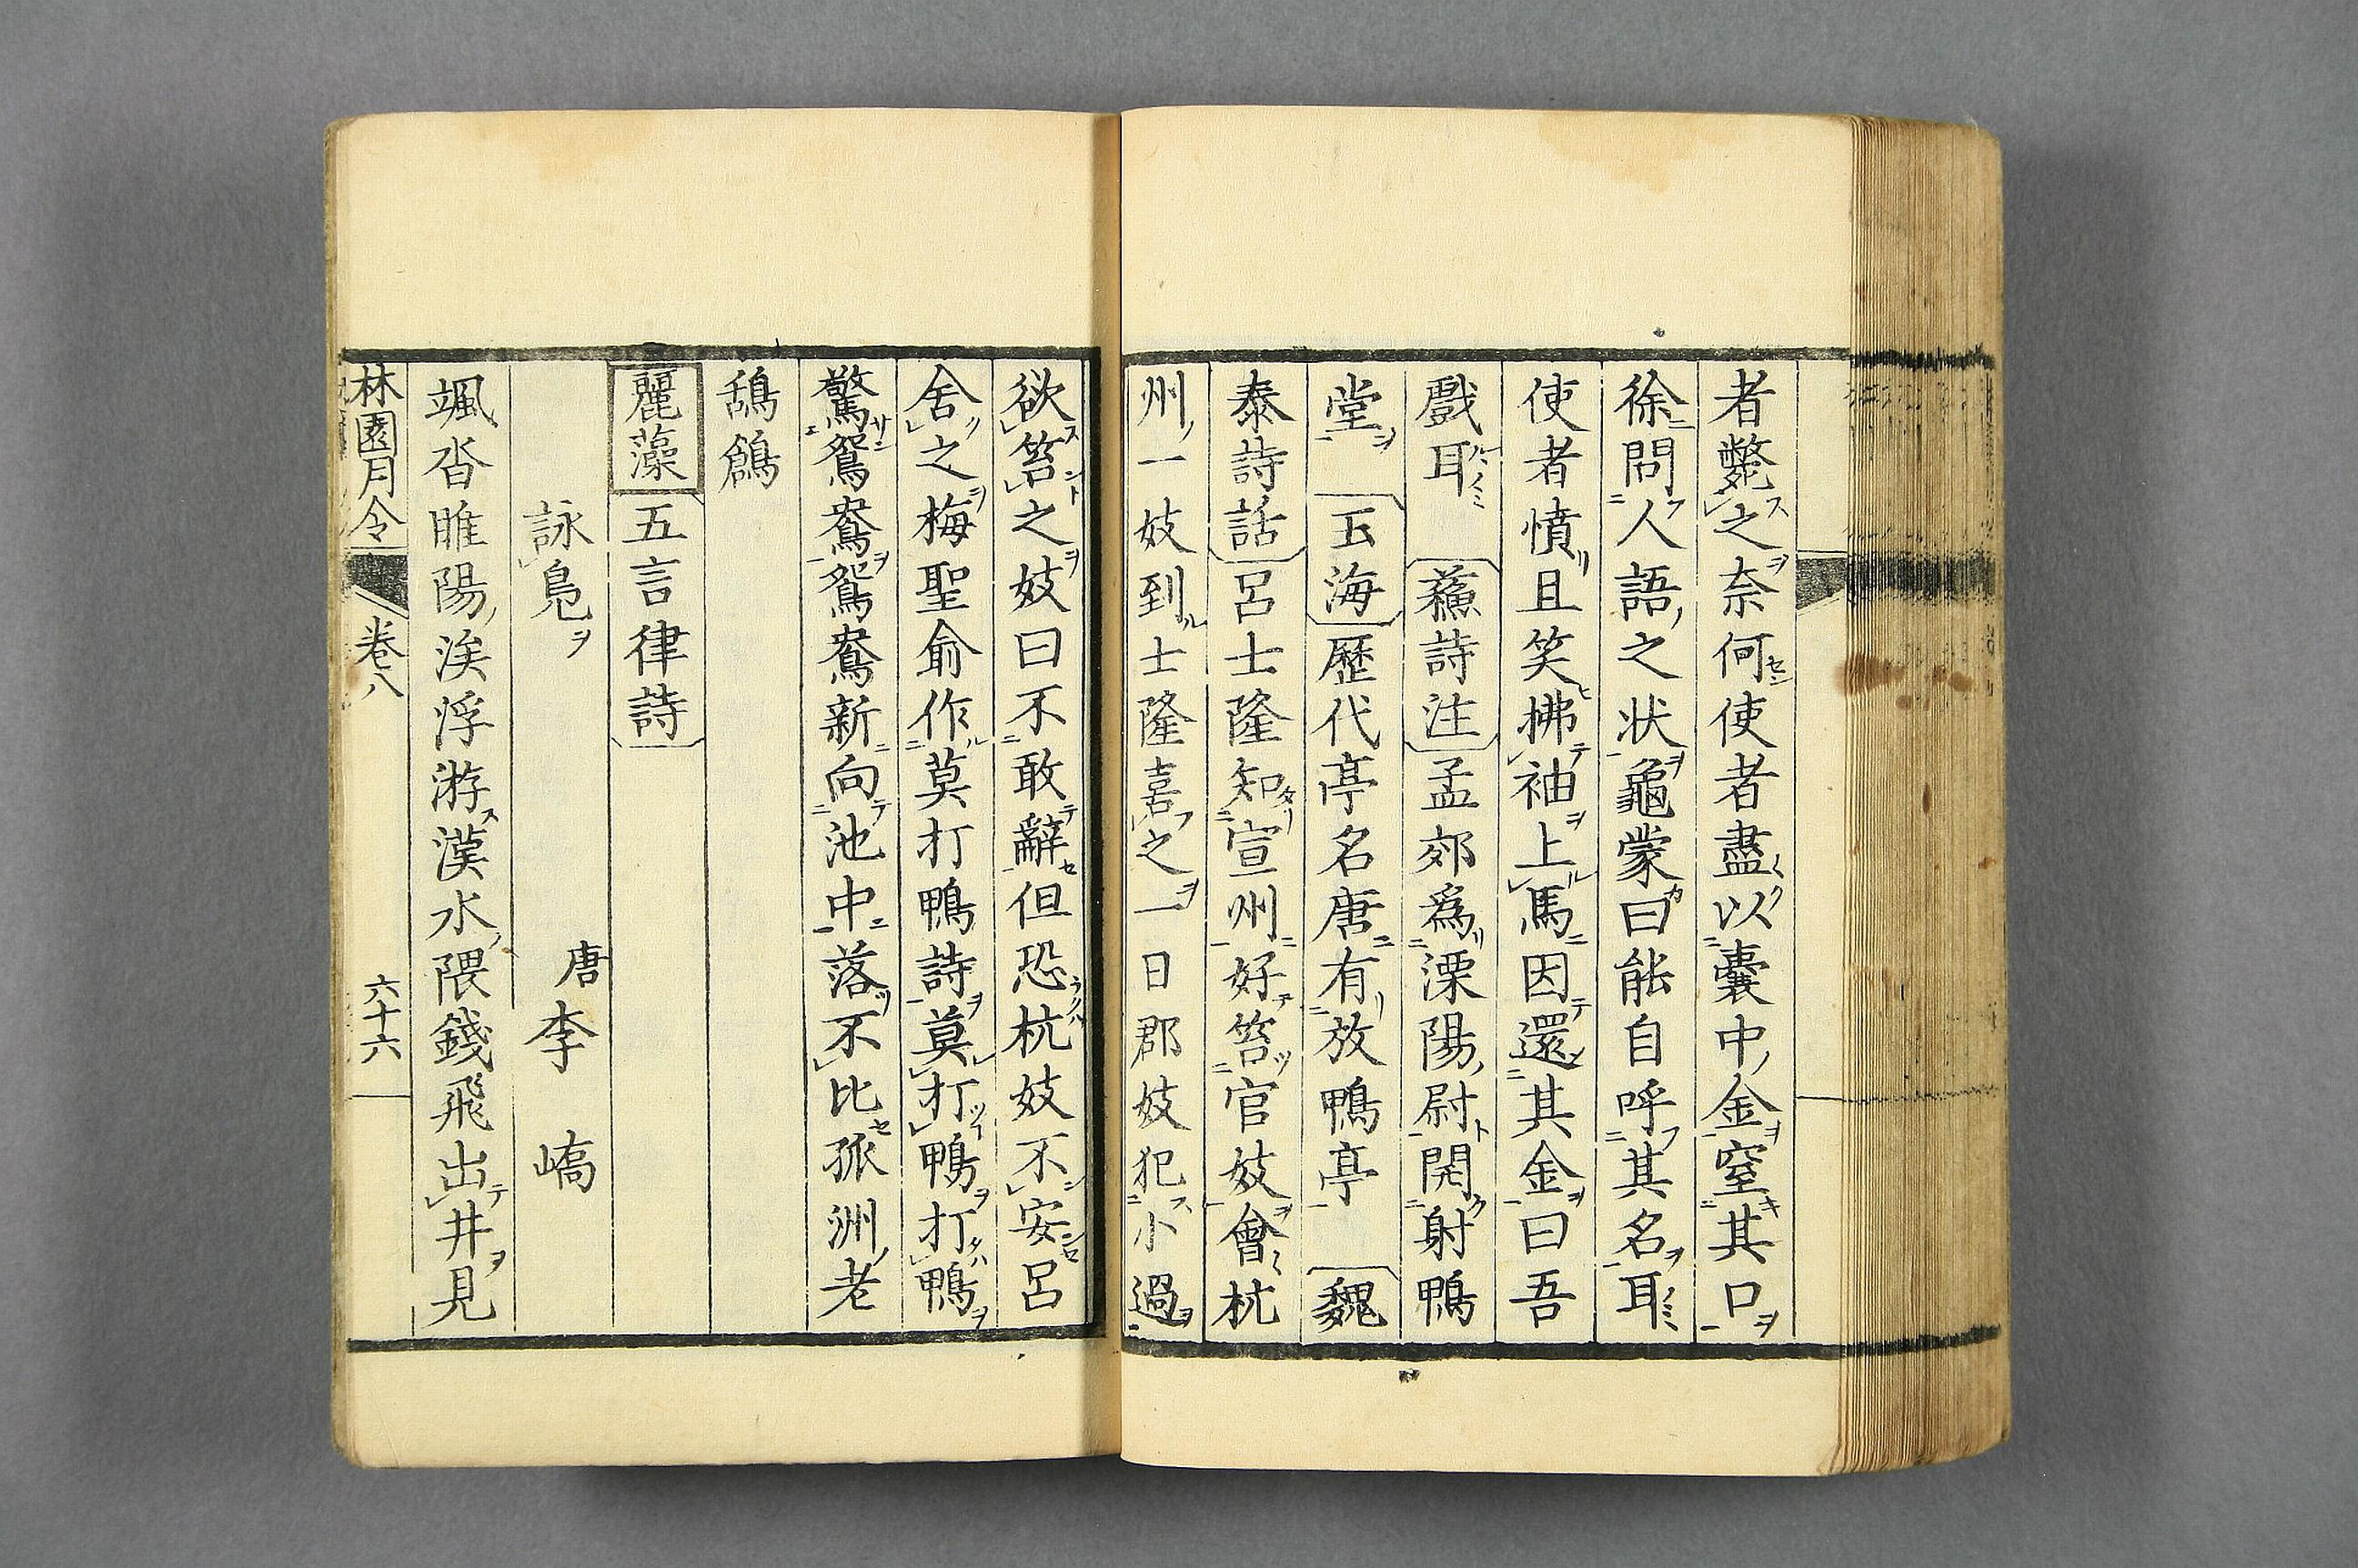 者斃之奈何使者盡以嚢中金窒其口
徐問人語之状龜蒙曰能自呼其名耳
使者憤且笑拂袖上馬因還其金曰吾
戲耳 蘓詩注 孟郊爲溧陽尉開射鴨
堂 玉海 歷代亭名唐有放鴨亭 魏
泰詩話 呂士隆知宣州好笞官妓會杭
州一妓到士隆喜之一日郡妓犯小過
欲笞之妓曰不敢辭但恐杭妓不安呂
舍之梅聖俞作莫打鴨詩莫打鴨打鴨
驚鴛鴦鴛鴦新向池中落不比孤洲老
鴰鶬
麗藻 五言律詩
詠鳬 唐李嶠
颯沓睢陽涘浮游漢水隈錢飛出井見
林園月令 卷八 六十六